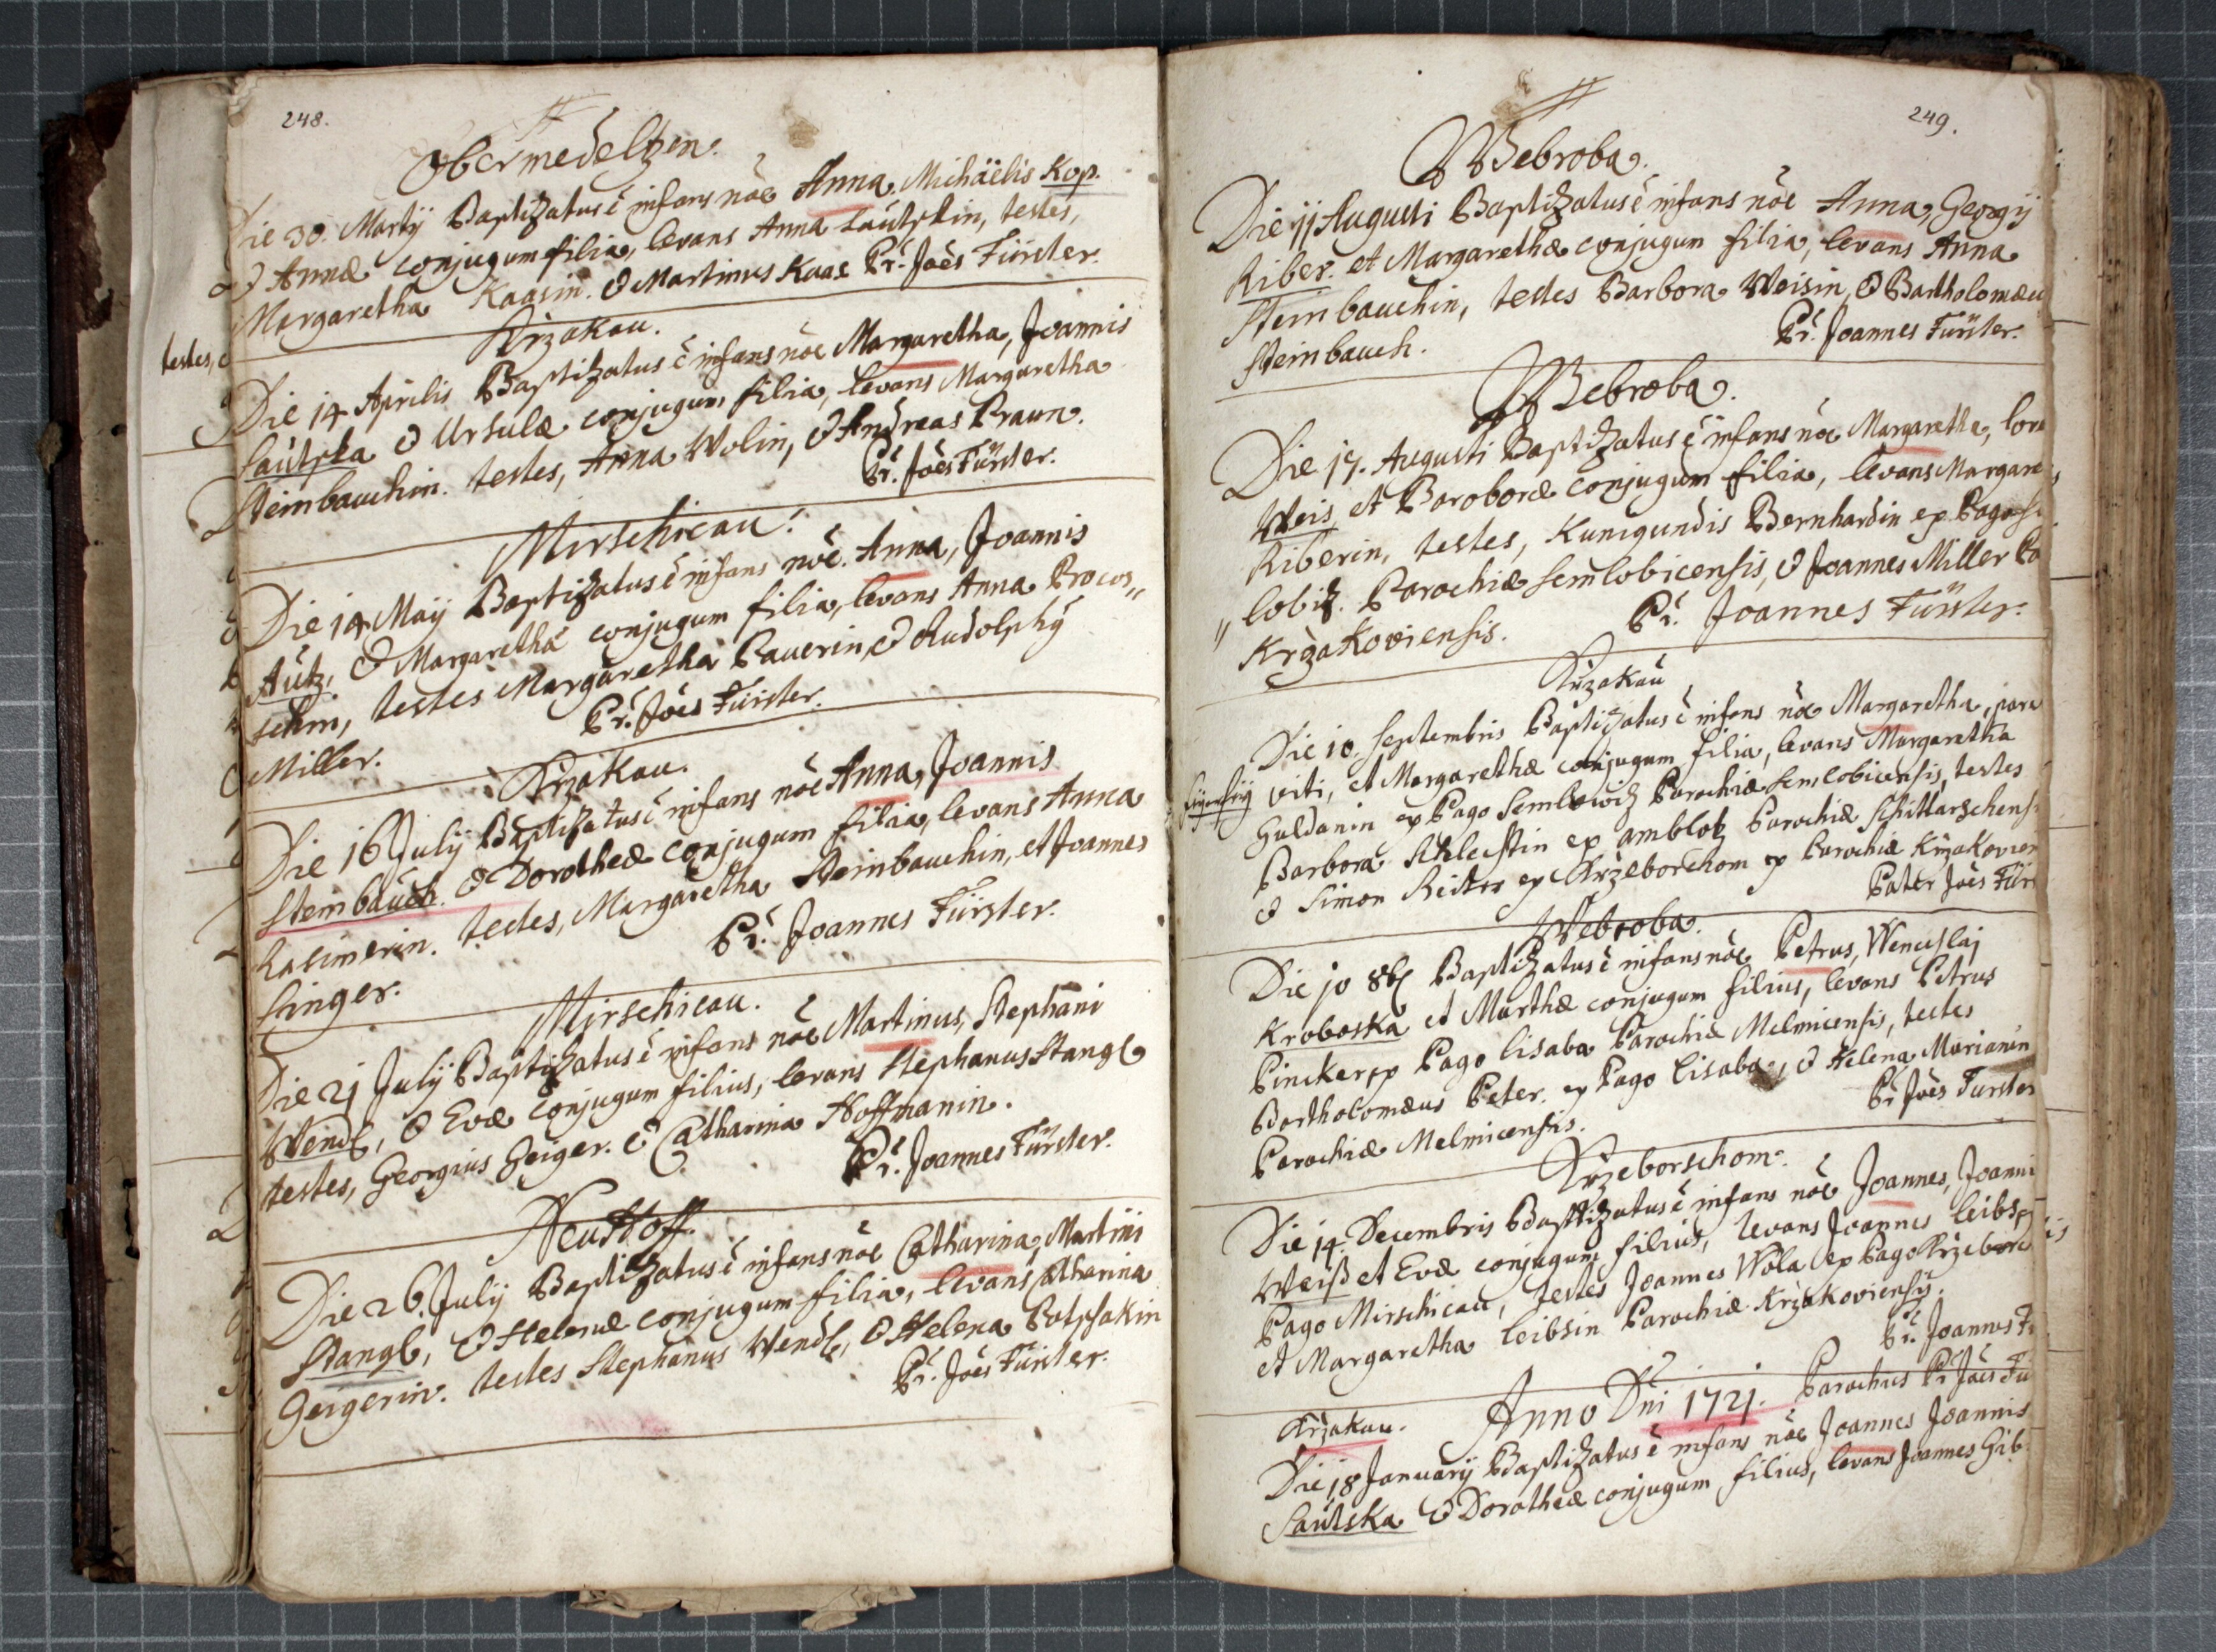 248.
Obermedeltzen.
Die 30. Martij Baptizatus ē infans nōe Anna. Michäelis Kop.
& Annæ conjugum filia, levans Anna Sautzkin, testes,
Margaretha Kaasin. & Martinus Kaas Pr. Joēs Fürster.
Krzakau.
Die 14 Aprilis Baptizatus ē infans nōe Margaretha, Joannis
Sautzka & Ursulæ conjugum filia, levans Margaretha
Steinbauchin. testes, Anna Wolin, & Andreas Praun.
Pr. Joēs Fürster.
Mirschicau.
Die 14 Maij Baptizatus ē infans nōe. Anna, Joannis
Autz, & Margaretha conjugum filia, levans Anna Procos„
schin, testes Margaretha Pauerin, & Rudolphÿ
Miller. Pr. Joēs Fürster.
Krzakau.
Die 16 Julij Baptizatus ē infans nōe Anna, Joannis
Steinbauch. & Dorotheæ conjugum filia, levans Anna
Kasimerin. testes, Margaretha Steinbauchin, et Joannes
Singer. Pr. Joannes Fürster.
Mirschicau.
Die 21 Julij Baptizatus ē infans nōe Martinus, Stephani
Wendl, & Evæ conjugum filius, levans Stephanus Stangl
testes, Georgius Geiger. & Catharina Hoffmanin.
Pr. Joannes Fürster.
Neuhoff.
Die 26. Julij Baptizatus ē infans nōe Catharina, Martini
Stangl, & Helenæ conjugum filia, levans Catharina
Geigerin. testes Stephanus Wendl, & Helena Potzsakin
Pr. Joēs Fürster.
testes,
249.
Webroba.
Die 11 Augusti Baptizatus ē infans nōe Anna, Georgij
Riber. et Margarethæ conjugum filia, levans Anna
Steinbauchin, testes Barbora Weisin, & Bartholomæu
Steinbauch. Pr. Joannes Fürster.
Webroba.
Die 17. Augusti Baptizatus ē infans nōe Margaretha, Lore
Weis et Baroboræ conjugum filia, levans Margare
Riberin, testes, Kunigundis Bernhardin ex Pago
„lobiz. Parochiæ Semlobicensis, & Joannes Miller Pa
Krzakoviensis. Pr. Joannes Fürster.
Krzakau
Die 10. Septembris Baptizatus ē infans nōe Margaretha, para
viti, et Margarethæ conjugum filia, levans Margaretha
Guldanin ex Pago Semlowiz Parochiæ Semlobicensis, testes
Barbora Schlechtin ex amblatz Parochiæ Schittarschens
& Simon Reiter ex Krzeborschom ex Parochiæ Krzakovien
Pater Joēs Für
Webroba.
Die 10 8bz Baptizatus ē infans nōe Petrus, Wenceslaj
Kroboska et Marthæ conjugum filius, levans Petrus
Pincker ex Pago Lisaba Parochiæ Melmicensis, testes
Bartholomæus Peter. ex Pago Lisaba, & Helena Marianin
Parochiæ Melmicensis. Pr Joēs Furster
Krzeborschom.
Die 14. Decembris Baptizatus ē infans nōe Joannes, Joanni
Weiß et Evæ conjugum filius, levans Joannes Leibs ex
Pago Mirschicau, testes Joannes Wola ex Pago Krzebor
et Margaretha Leibsin Parochiæ Krzakoviensis.
Pr. Joannes F
Anno Dni 1721. Parochus Pr Joēs Fu
Krzakau.
Die 18 Januarij Baptizatus ē infans nōe Joannes Joannis
Sautska & Dorotheæ conjugum filius, levans Joannes Gib